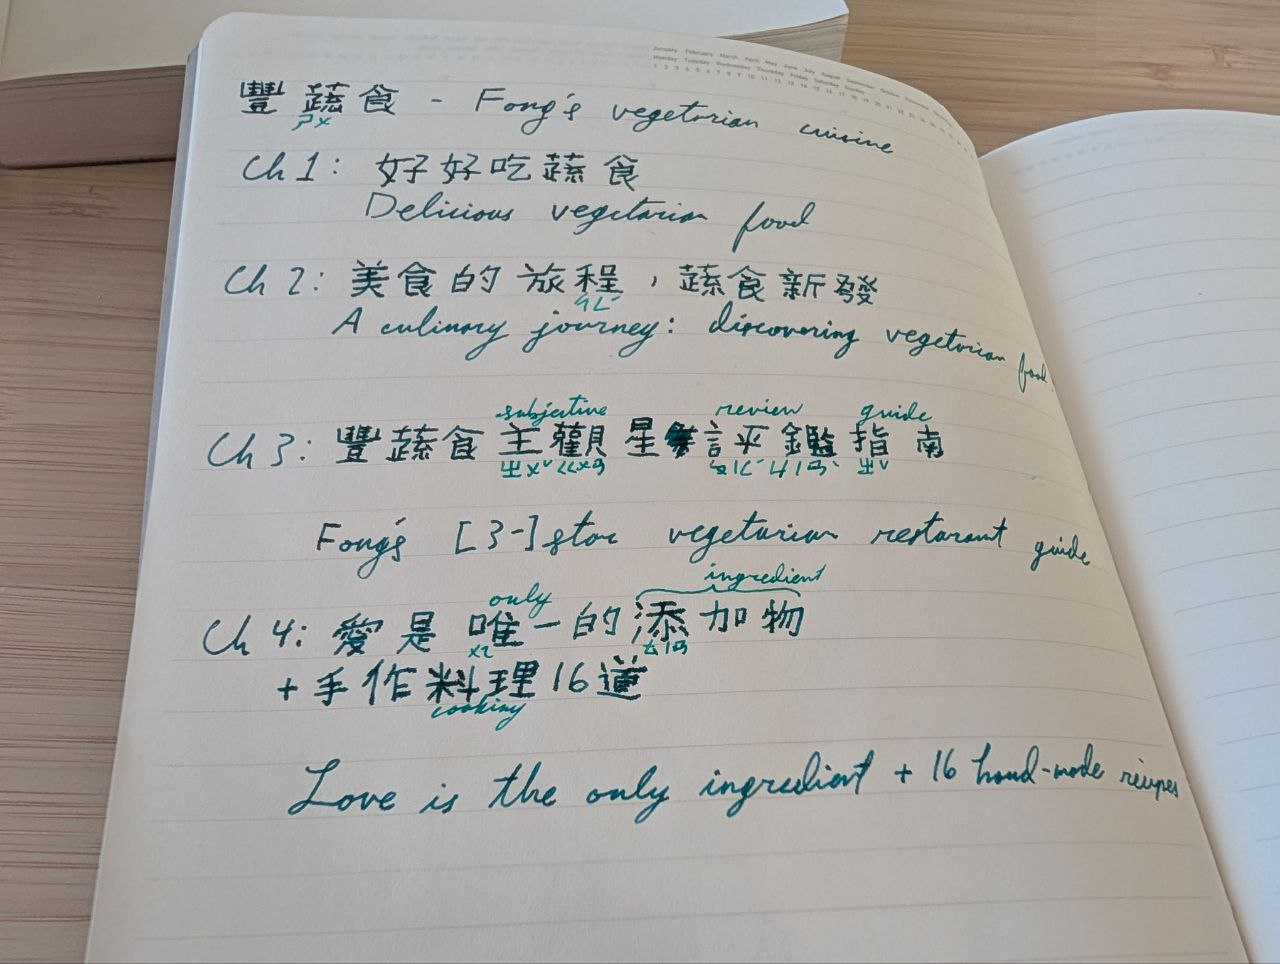 January February March April May June July August September October November
Monday Tuesday Wednesday Thursday Friday Saturday Sunday
1 2 3 4 5 6 7 8 9 10 11 12 13 14 15 16 17 18 19 20 21 22 23 24 25 26
豐蔬食 - Fong's vegetarian cuisine
ㄕㄨ
Ch 1: 好好吃蔬食
Delicious vegetarian food
Ch 2: 美食的旅程，蔬食新發
ㄔㄥˊ
A culinary journey: discovering vegetarian food.
subjective review guide
Ch 3: 豐蔬食主觀星評鑑指南
ㄓㄨˇ ㄍㄨㄢ ㄆㄧㄥˊ ㄐㄧㄢˋ ㄓˇ
Fong's [3-]star vegetarian restarant guide
only ingredient
Ch 4: 愛是唯一的添加物
ㄨㄟ ㄊㄧㄢ
+ 手作料理16道
cooking
Love is the only ingredient + 16 hand-made recipes